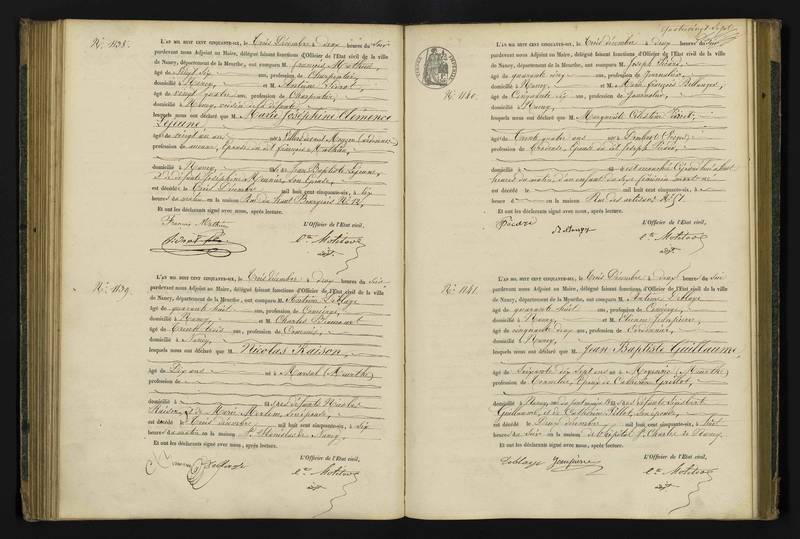 N.º 1138.
L'AN MIL HUIT CENT CINQUANTE-SIX, le Trois Décembre à deux heures du Soir
pardevant nous Adjoint au Maire, délégué faisant fonctions d'Officier de l'Etat civil de la ville
de Nancy, département de la Meurthe, ont comparu M. françois Mathieu,
âgé de Vingt six ans, profession de Charpentier,
domicilié à Nancy et M. Antoine
âgé de vingt quatre ans, profession de Charpentier,
domicilié à Nancy, voisin de la défunte
lesquels nous ont déclaré que M. Marie Joséphine Clémence
Lejeune
âgé de vingt un ans né à
profession de épouse en dit françois Mathieu,
domicilié à Nancy fille de Jean Baptiste Lejeune,
& de défunte Joséphine Meunier, son épouse,
est décédé le Trois Décembre mil huit cent cinquante-six, à Six
heures du matin en la maison Rue du haut Bourgeois N.º 12
Et ont les déclarants signé avec nous, après lecture.
L'Officier de l'Etat civil,
N.º 1139.
L'AN MIL HUIT CENT CINQUANTE-SIX, le Trois décembre à deux heures du Soir
pardevant nous Adjoint au Maire, délégué faisant fonctions d'Officier de l'Etat civil de la ville
de Nancy, département de la Meurthe, ont comparu M. Antoine Deblaye
âgé de quarante huit ans, profession de Concierge,
domicilié à Nancy, et M. Charles
âgé de Trente trois ans, profession de Commis,
domicilié à Nancy,
lesquels nous ont déclaré que M. Nicolas Raison,
âgé de Dix ans né à Marsal (Meurthe)
profession de
domicilié à fils de défunts Nicolas
Raison, & de Marie son épouse,
est décédé le Trois décembre mil huit cent cinquante-six, à Six
heures du matin en la maison St. Stanislas de Nancy.
Et ont les déclarants signé avec nous, après lecture.
L'Officier de l'Etat civil,
Deblaye
quatrevingt Sept
N.º 1140.
L'AN MIL HUIT CENT CINQUANTE-SIX, le Trois décembre à deux heures du Soir
pardevant nous Adjoint au Maire, délégué faisant fonctions d'Officier de l'Etat civil de la ville
de Nancy, département de la Meurthe, ont comparu M. Joseph Picard,
âgé de quarante cinq ans, profession de Journalier,
domicilié à Nancy, et M. françois
âgé de Cinquante six ans, profession de Journalier,
domicilié à Nancy,
lesquels nous ont déclaré que M. Marguerite Célestine
âgé de Trente quatre ans né à
profession de épouse en dit Joseph Picard,
domicilié à est accouchée Cejourd'hui à huit
heures du matin d'un enfant du sexe féminin mort né
est décédé le mil huit cent cinquante-six, à
heure en la maison Rue des artisans N.º 51
Et ont les déclarants signé avec nous, après lecture.
L'Officier de l'Etat civil,
Picard
N.º 1141.
L'AN MIL HUIT CENT CINQUANTE-SIX, le Trois Décembre à deux heures du Soir
pardevant nous Adjoint au Maire, délégué faisant fonctions d'Officier de l'Etat civil de la ville
de Nancy, département de la Meurthe, ont comparu M. Antoine Deblaye
âgé de quarante huit ans, profession de Concierge,
domicilié à Nancy, et M. Etienne Jeanpierre,
âgé de cinquante deux ans, profession de Cordonnier,
domicilié à Nancy,
lesquels nous ont déclaré que M. Jean Baptiste Guillaume,
âgé de Soixante dix Sept ans né à Moyenvic (Meurthe)
profession de Tonnelier, époux de Catherine
domicilié à Nancy, fils de défunts
Guillaume, & de Catherine son épouse,
est décédé le Deux décembre mil huit cent cinquante-six, à
heures du Soir en la maison de l'hôpital St. Charles de Nancy.
Et ont les déclarants signé avec nous, après lecture.
L'Officier de l'Etat civil,
Deblaye Jeanpierre